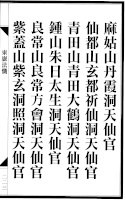 麻姑山丹霞洞天仙官
仙都山玄都祈仙洞天仙官
青田山青田大鶴洞天仙官
鍾山朱日太生洞天仙官
良常山良常方會洞天仙官
紫蓋山紫玄洞照洞天仙官